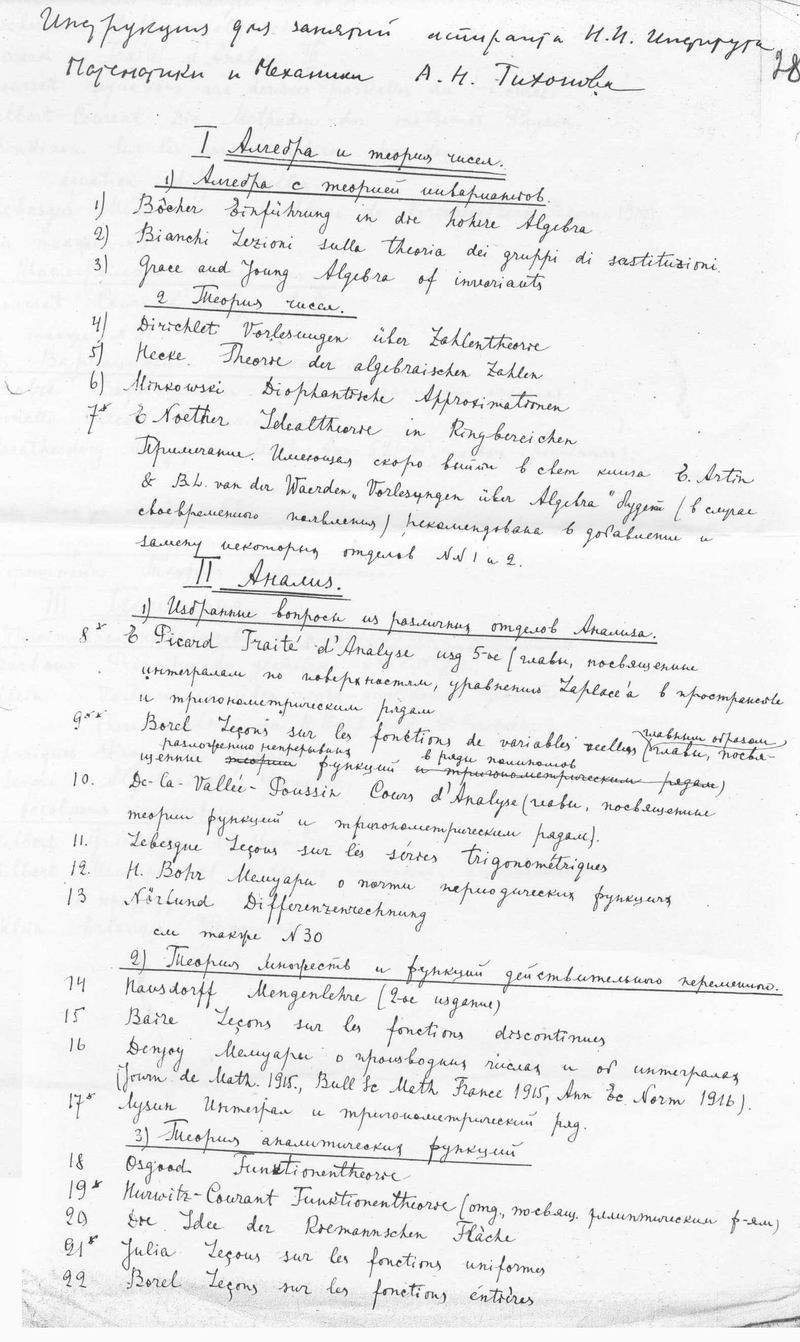 Инструкция для занятий аспиранта Н.И. Института
Математики и Механики А. Н. Тихонова
28
I Алгебра и теория чисел.
1) Алгебра с теорией инвариантов.
1) Bôcher Einführung in die höhere Algebra
2) Bianchi Lezioni sulla theoria dei gruppi di sostituzioni
3) Grace and Young Algebra of invariants
2 Теория чисел.
4) Dirichlet Vorlesungen über Zahlentheorie
5) Hecke. Theorie der algebraischen Zahlen
6) Minkowski Diophantische Approximationen
7* E Noether Idealtheorie in Ringbereichen
Примечание. Имеющая скоро выйти в свет книга E. Artin
& B.L. van der Waerden „Vorlesungen über Algebra" будет (в случае
своевременного появления) рекомендована в добавление и
замену некоторых отделов NN 1 и 2.
II Анализ.
1) Избранные вопросы из различных отделов Анализа.
8* E Picard Traité d'Analyse изд 5-ое (главы, посвященные
интегралам по поверхностям, уравнению Laplace'а в пространстве
и тригонометрическим рядам
9** Borel Leçons sur les fonctions de variables reelles (главным образом главы, посвя-
щенные теории разложению непрерывных функций в ряды полиномов и тригонометрическим рядам)
10. De-la-Vallée-Poussin Cours d'Analyse (главы, посвященные
теории функций и тригонометрическим рядам).
11. Lebesgue Leçons sur les séries trigonométriques
12. H. Bohr Мемуары о почти периодических функциях
13 Nörlund Differenzenrechnung
см также N30
2) Теория множеств и функций действительного переменного.
14 Hausdorff Mengenlehre (2-ое издание)
15 Baire Leçons sur les fonctions discontinues
16 Denjoy Мемуары о производных числах и об интегралах
(Journ de Math. 1915., Bull Sc Math France 1915, Ann Ec Norm 1916).
17* Лузин Интеграл и тригонометрический ряд.
3) Теория аналитических функций
18 Osgood Funktionentheorie
19* Hurwitz-Courant Funktionentheorie (отд., посвящ. эллиптическим ф-ям)
20 Die Idee der Riemannschen Fläche
21* Julia Leçons sur les fonctions uniformes
22 Borel Leçons sur les fonctions entières